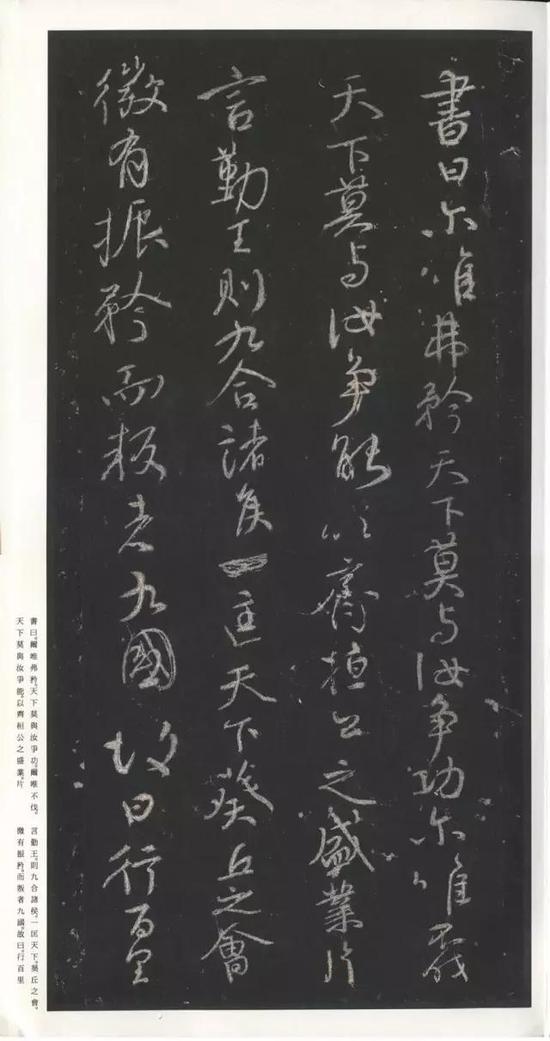 書曰尔唯弗矜天下莫与汝争功尔唯不伐
天下莫与汝争能以齊桓公之盛業片
言勤王則九合諸侯一匡天下葵丘之會
微有振矜而叛者九國故曰行百里
書曰。爾唯弗矜。天下莫與汝爭功。爾唯不伐。
天下莫與汝爭能。以齊桓公之盛業。片
言勤王。則九合諸侯。一匡天下。葵丘之會。
微有振矜。而叛者九國。故曰。行百里